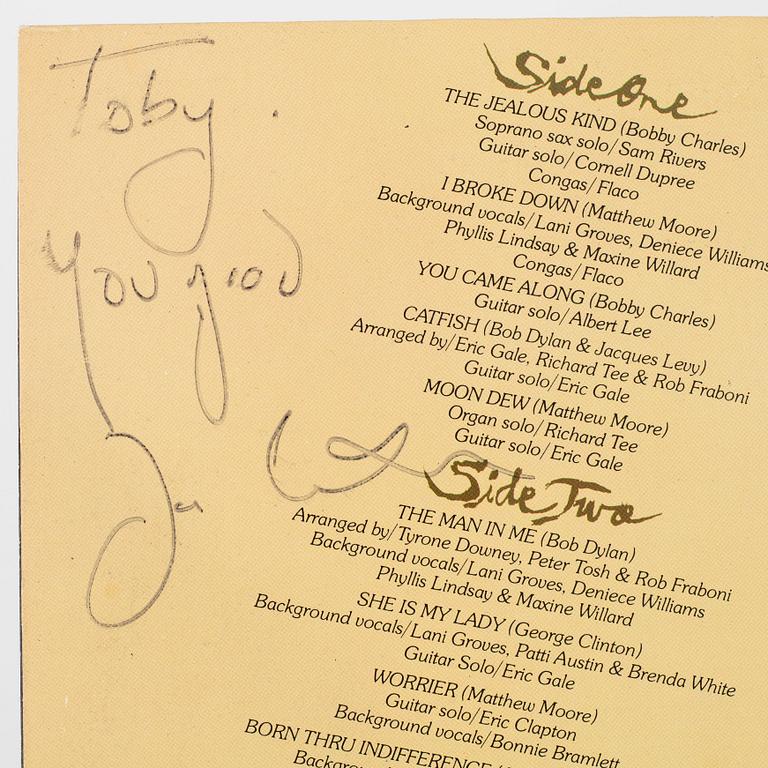 Toby.
You good
Side One
THE JEALOUS KIND (Bobby Charles)
Soprano sax solo/Sam Rivers
Guitar solo/Cornell Dupree
Congas/Flaco
I BROKE DOWN (Matthew Moore)
Background vocals/Lani Groves, Deniece Williams
Phyllis Lindsay & Maxine Willard
Congas/Flaco
YOU CAME ALONG (Bobby Charles)
Guitar solo/Albert Lee
CATFISH (Bob Dylan & Jacques Levy)
Arranged by/Eric Gale, Richard Tee & Rob Fraboni
Guitar solo/Eric Gale
MOON DEW (Matthew Moore)
Organ solo/Richard Tee
Guitar solo/Eric Gale
Side Two
THE MAN IN ME (Bob Dylan)
Arranged by/Tyrone Downey, Peter Tosh & Rob Fraboni
Background vocals/Lani Groves, Deniece Williams
Phyllis Lindsay & Maxine Willard
SHE IS MY LADY (George Clinton)
Background vocals/Lani Groves, Patti Austin & Brenda White
Guitar Solo/Eric Gale
WORRIER (Matthew Moore)
Guitar solo/Eric Clapton
Background vocals/Bonnie Bramlett
BORN THRU INDIFFERENCE